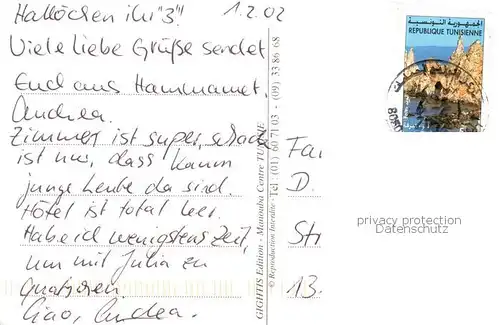 Hallöchen ihr "3"! 1.2.02
Viele liebe Grüße sendet
Euch aus Hammamet,
Andrea.
Zimmer ist super, schade
ist nur, dass kaum
junge Leute da sind.
Hotel ist total leer.
Hab ich wenigstens Zeit,
um mit Julia zu
quatschen.
Ciao, Andrea.
GIGHTIS Edition - Manouba Centre TUNISIE
© Reproduction Interdite - Tel : (01) 60 71 03 - (09) 33 86 68
الجمهورية التونسية
REPUBLIQUE TUNISIENNE
Fa
D.
St
13.
privacy protection
Datenschutz